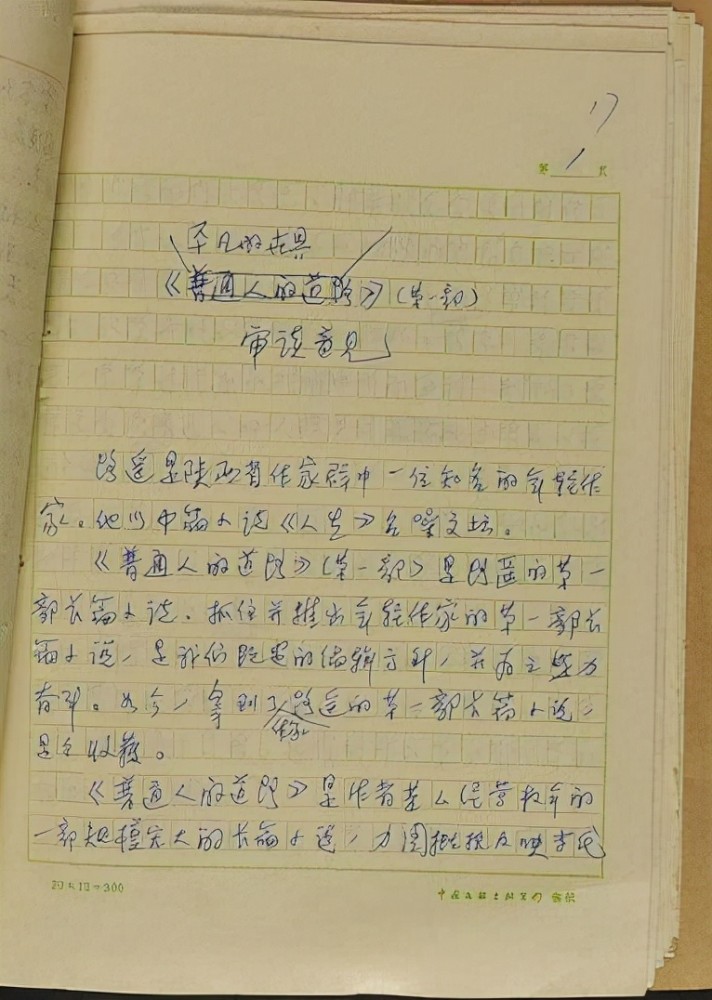 17
第 1 页
平凡的世界
《普通人的道路》(第一部)
审读意见
路遥是陕西省作家群中一位知名的年轻作
家。他以中篇小说《人生》名噪文坛。
《普通人的道路》(第一部)是路遥的第一
部长篇小说。抓住并推出年轻作家的第一部长
篇小说,是我们既定的编辑方针,并为之努力
奋斗。如今,拿到了路遥的第一部长篇小说,
作家
是个收获。
《普通人的道路》是作者苦心经营数年的
一部规模宏大的长篇小说,力图概括反映当代
20×15=300
中国文联出版公司